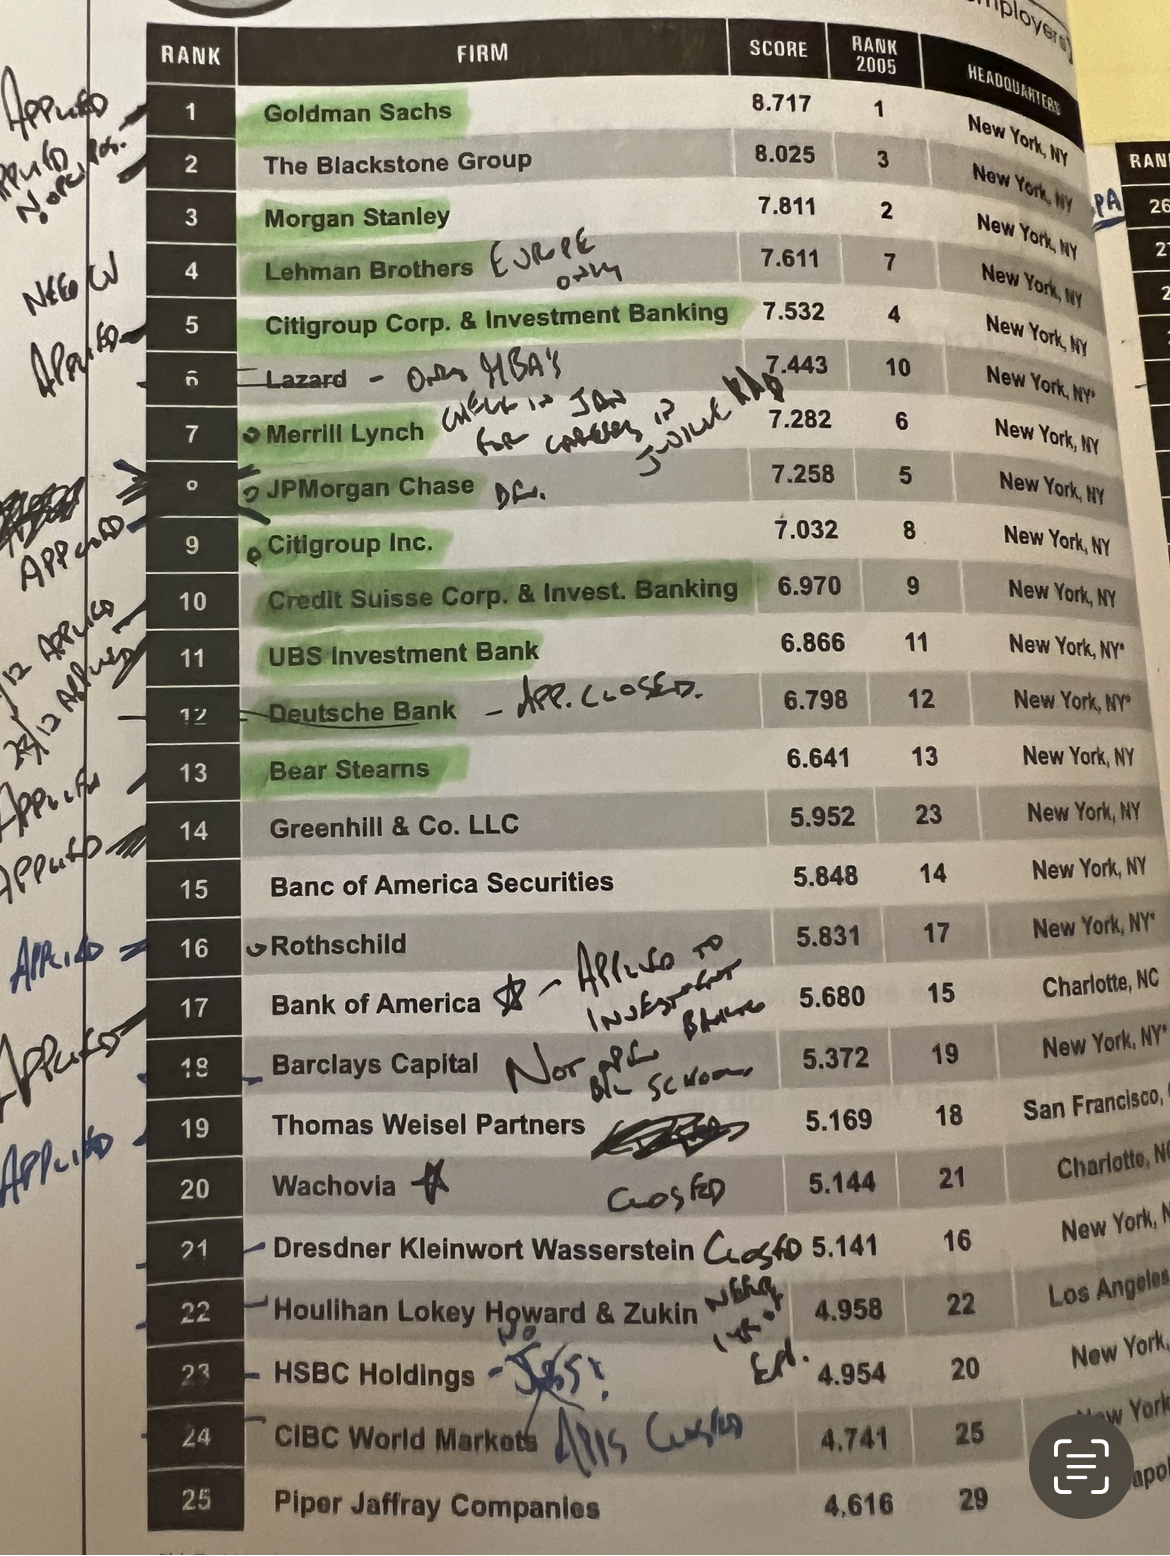 mployers)
RANK FIRM SCORE RANK 2005 HEADQUARTERS
APPLIED 1 Goldman Sachs 8.717 1 New York, NY
2 The Blackstone Group 8.025 3 New York, NY
3 Morgan Stanley 7.811 2 New York, NY
4 Lehman Brothers EUROPE ONLY 7.611 7 New York, NY
NEED
APPLIED 5 Citigroup Corp. & Investment Banking 7.532 4 New York, NY
6 Lazard - ONLY MBA'S 7.443 10 New York, NY*
7 Merrill Lynch CHECK IN JAN FOR CAREERS IN 7.282 6 New York, NY
JPMorgan Chase 7.258 5 New York, NY
APPLIED 9 Citigroup Inc. 7.032 8 New York, NY
10 Credit Suisse Corp. & Invest. Banking 6.970 9 New York, NY
/12 APPLIED 11 UBS Investment Bank 6.866 11 New York, NY*
23/12 APPLIED 12 Deutsche Bank - APP. CLOSED. 6.798 12 New York, NY*
APPLIED 13 Bear Stearns 6.641 13 New York, NY
APPLIED 14 Greenhill & Co. LLC 5.952 23 New York, NY
15 Banc of America Securities 5.848 14 New York, NY
APPLIED 16 Rothschild 5.831 17 New York, NY*
17 Bank of America - APPLIED TO INVESTMENT BANKING 5.680 15 Charlotte, NC
APPLIED 18 Barclays Capital NOT 5.372 19 New York, NY*
APPLIED 19 Thomas Weisel Partners 5.169 18 San Francisco,
20 Wachovia CLOSED 5.144 21 Charlotte, NC
21 Dresdner Kleinwort Wasserstein CLOSED 5.141 16 New York, N
22 Houlihan Lokey Howard & Zukin 4.958 22 Los Angeles
23 HSBC Holdings - NO JOBS! 4.954 20 New York,
24 CIBC World Markets APPS CLOSED 4.741 25 New York
25 Piper Jaffray Companies 4.616 29 apol
PA
RAN
26
2
2